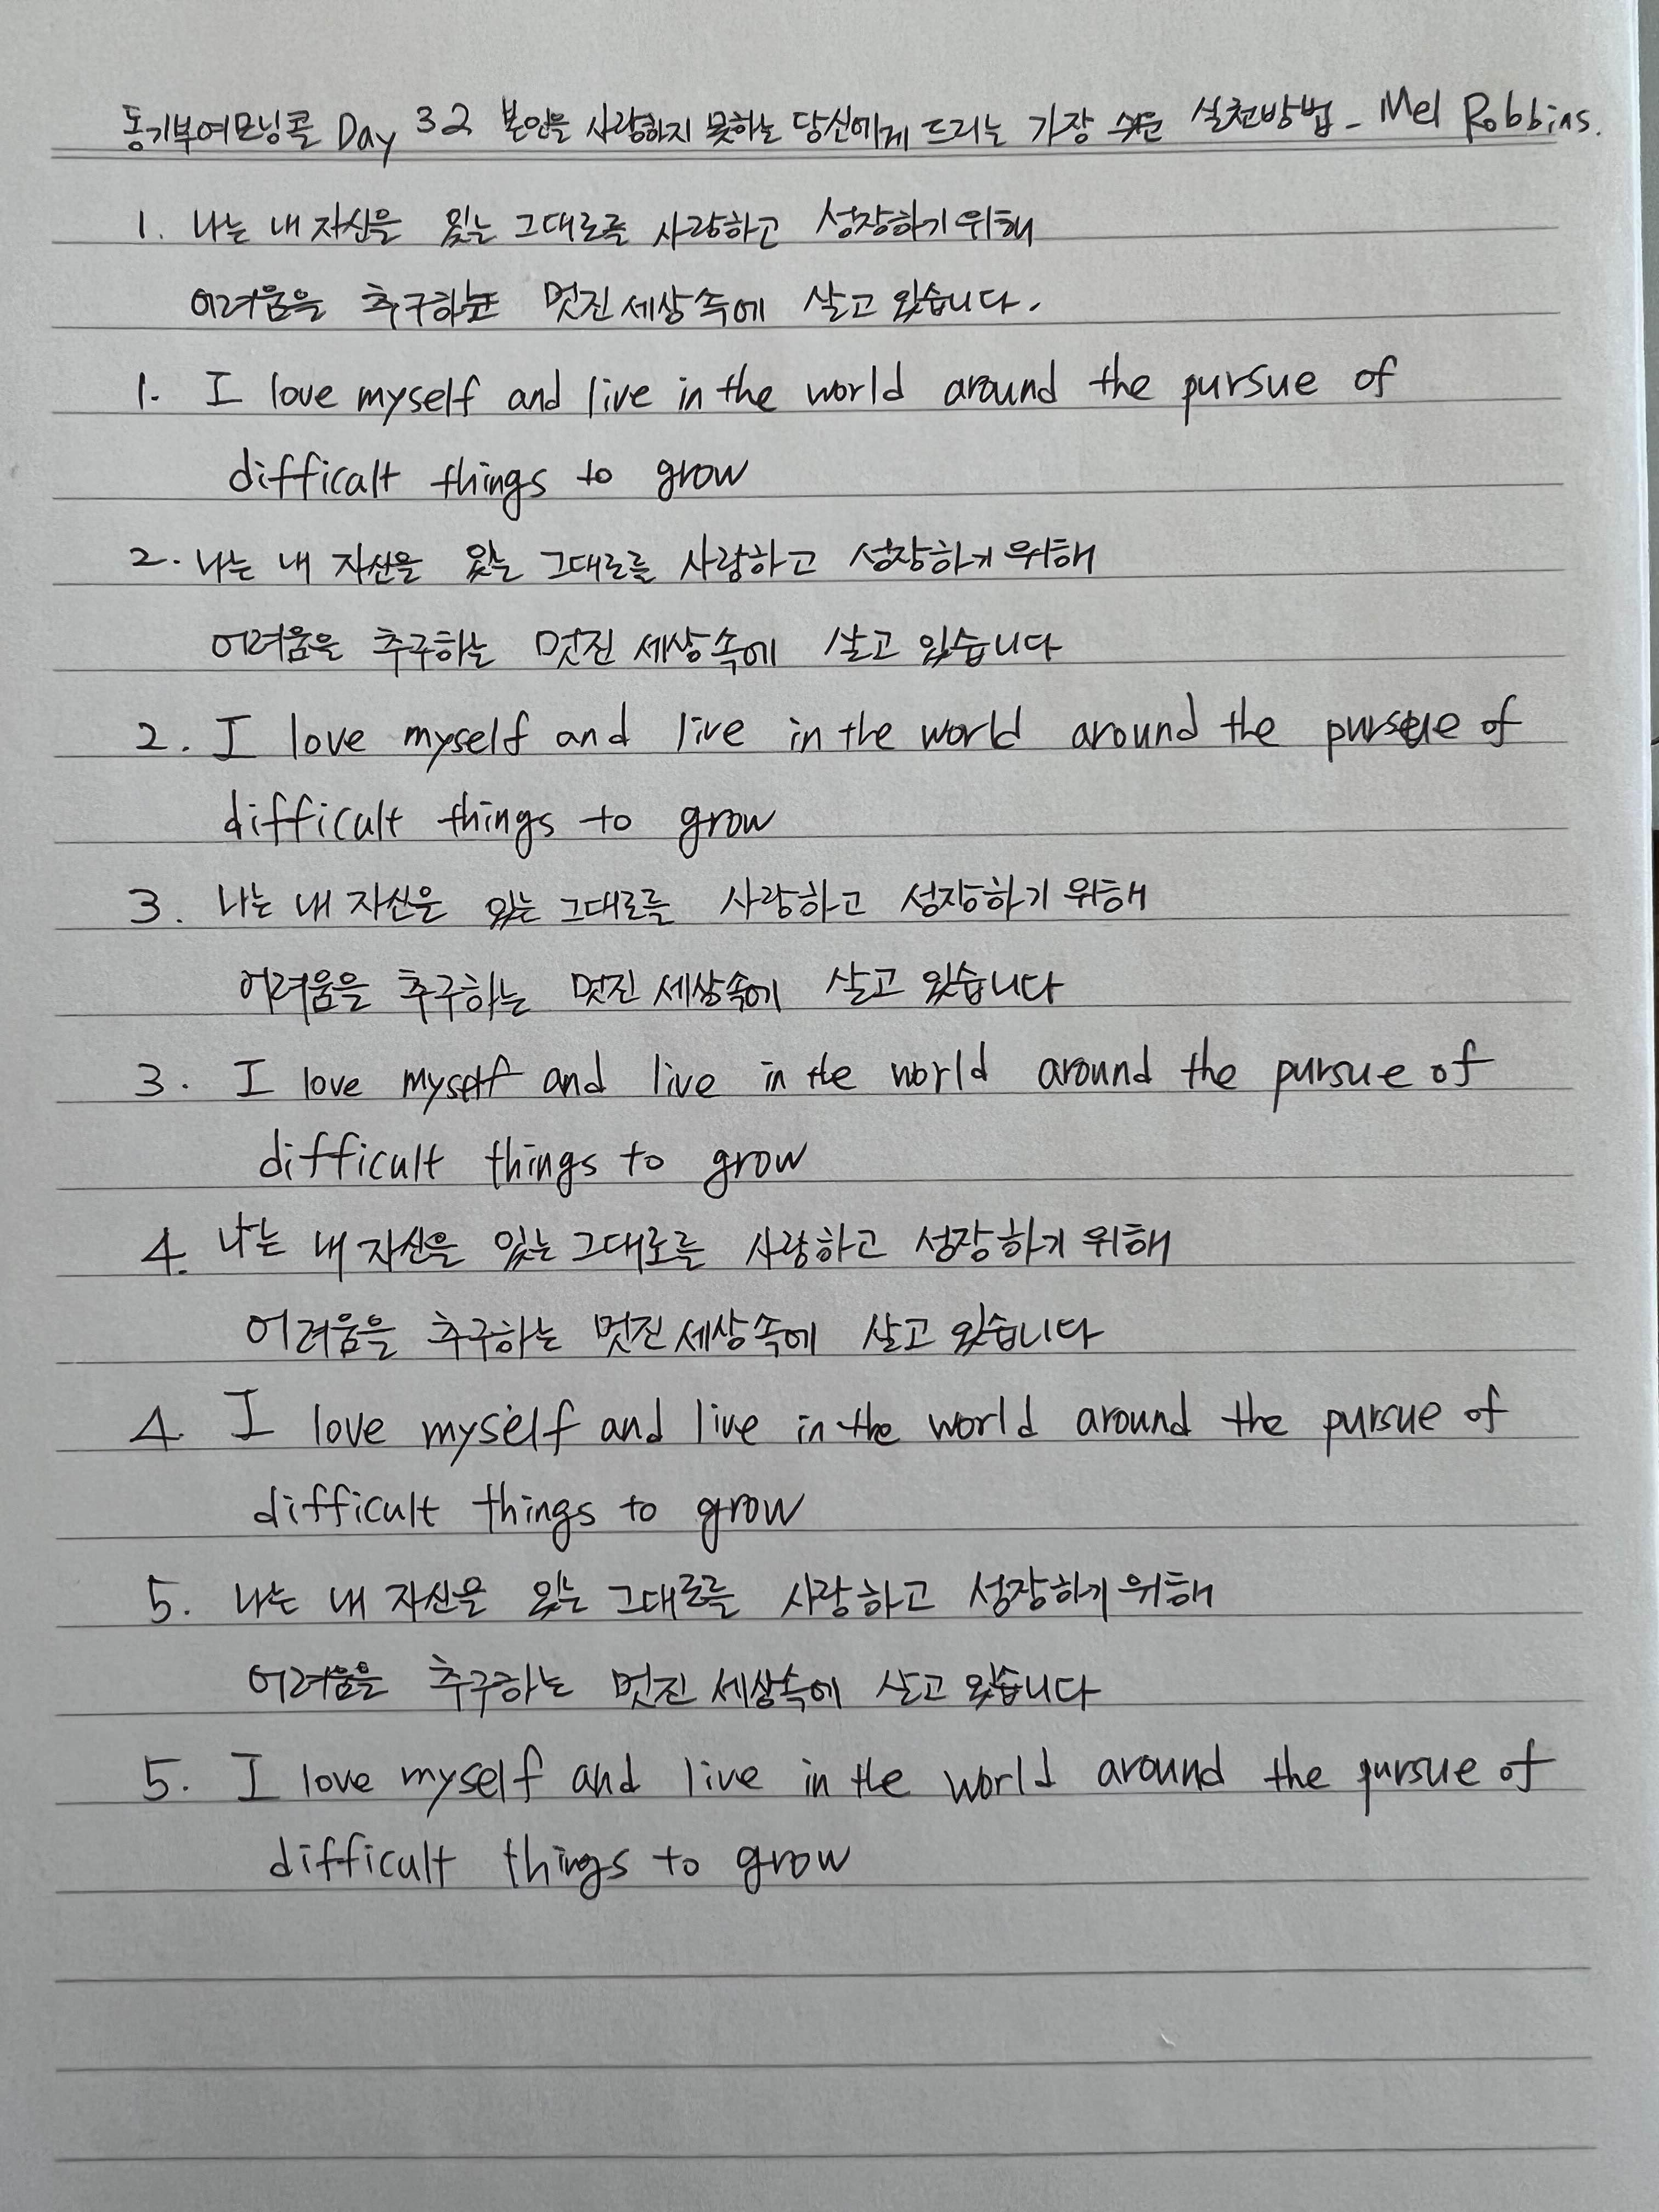 동기부여모닝콜 Day 32 본인을 사랑하지 못하는 당신에게 드리는 가장 쉬운 실천방법 - Mel Robbins.
1. 나는 내 자신을 있는 그대로를 사랑하고 성장하기 위해
어려움을 추구하는 멋진 세상속에 살고 있습니다.
1. I love myself and live in the world around the pursue of
difficalt things to grow
2. 나는 내 자신을 있는 그대로를 사랑하고 성장하기 위해
어려움을 추구하는 멋진 세상속에 살고 있습니다
2. I love myself and live in the world around the pursue of
difficult things to grow
3. 나는 내 자신은 있는 그대로를 사랑하고 성장하기 위해
어려움을 추구하는 멋진 세상속에 살고 있습니다
3. I love myself and live in the world around the pursue of
difficult things to grow
4. 나는 내 자신을 있는 그대로를 사랑하고 성장하기 위해
어려움을 추구하는 멋진 세상속에 살고 있습니다
4. I love myself and live in the world around the pursue of
difficult things to grow
5. 나는 내 자신을 있는 그대로를 사랑하고 성장하기 위해
어려움을 추구하는 멋진 세상속에 살고 있습니다
5. I love myself and live in the world around the pursue of
difficult things to grow